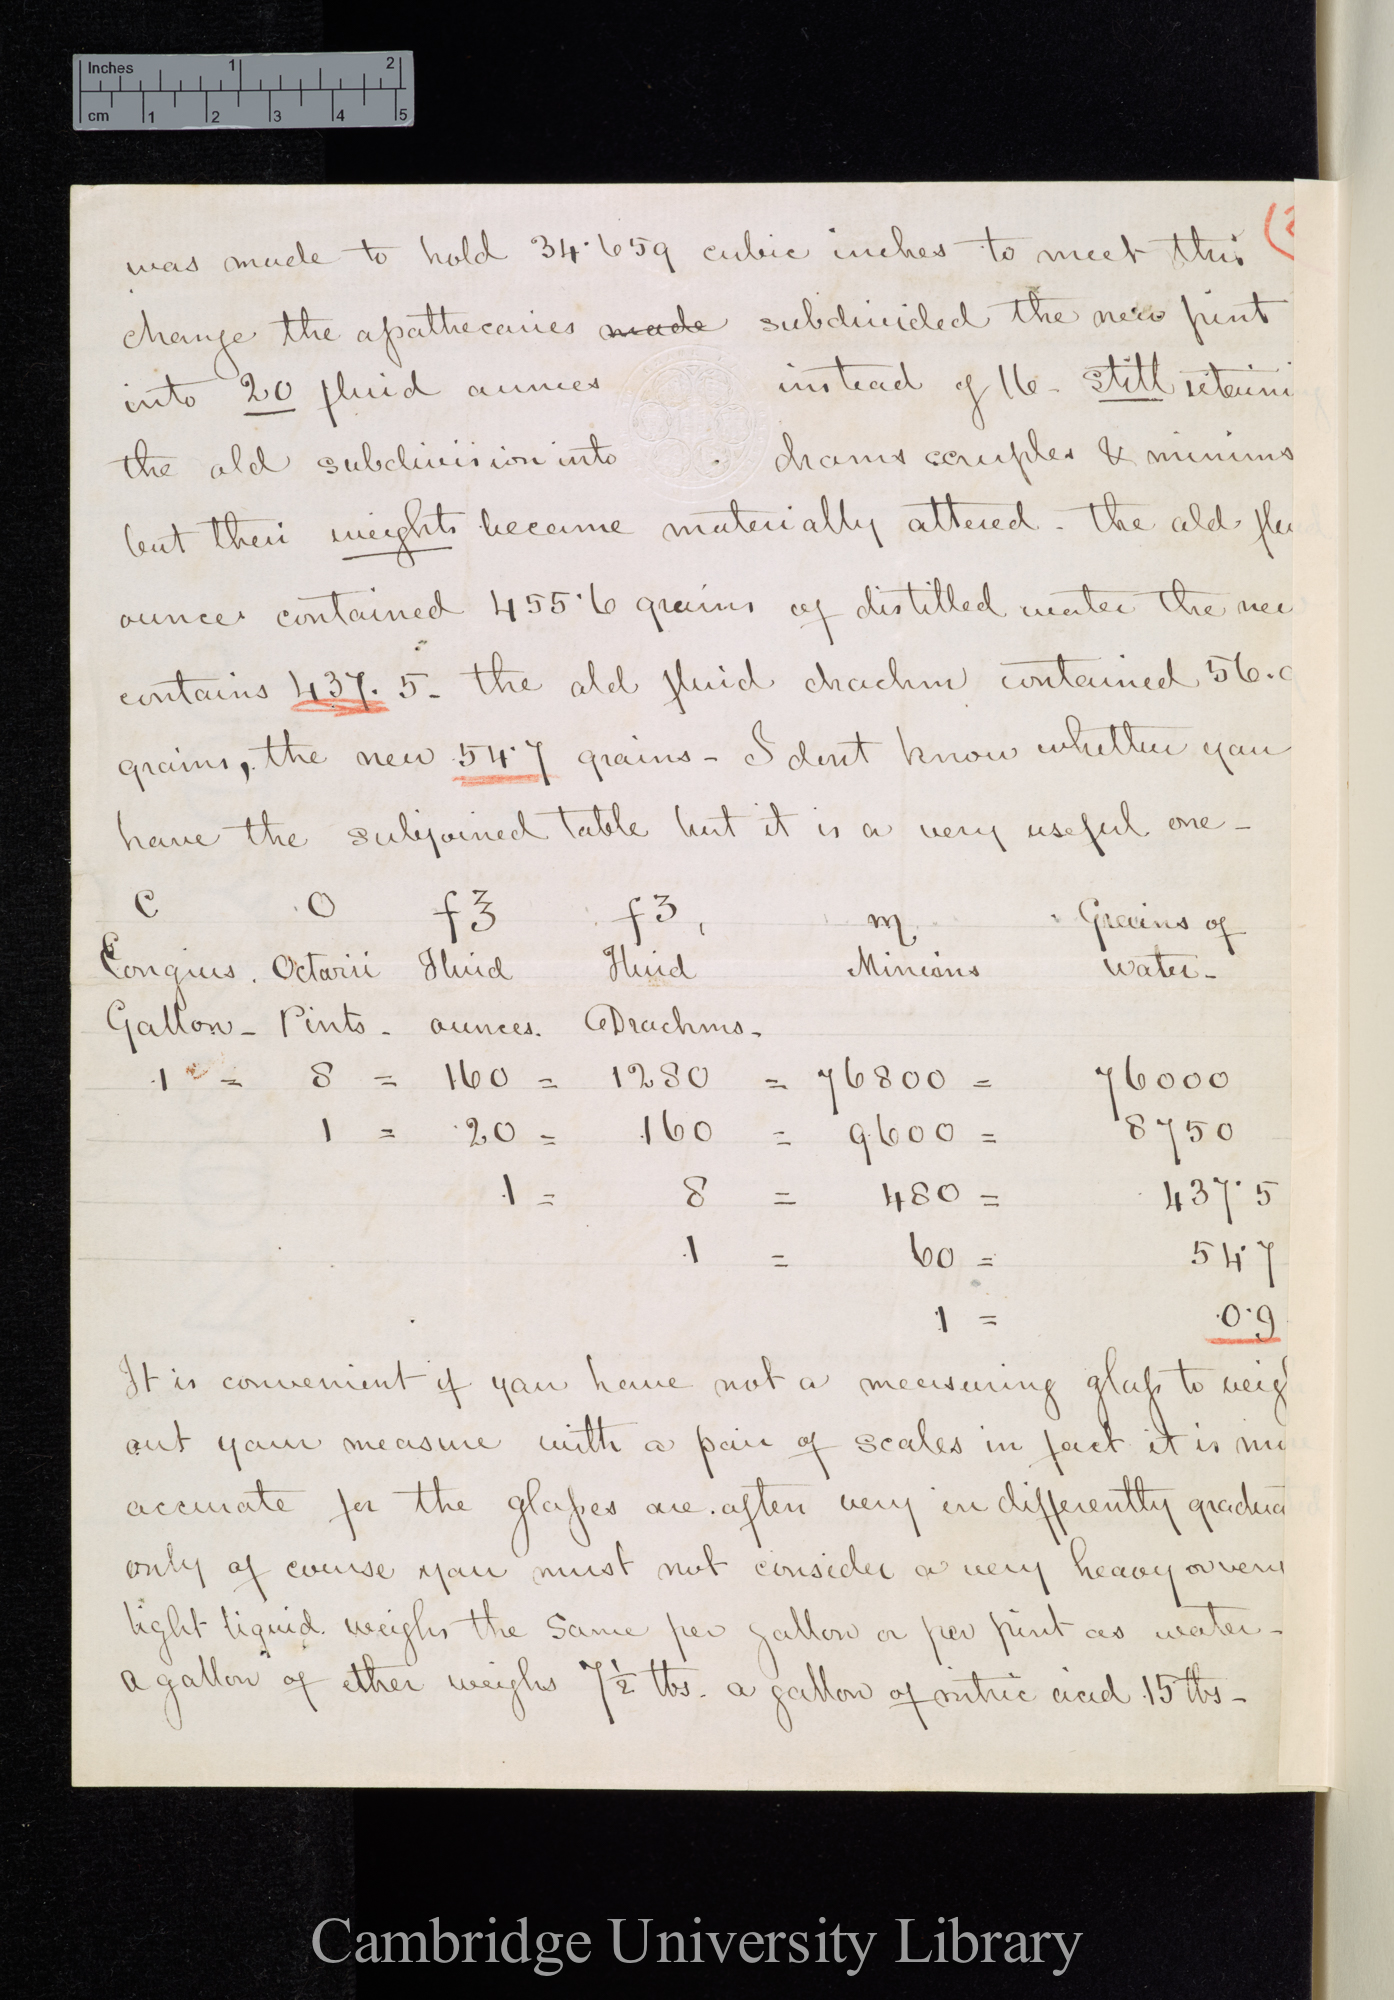 Inches 1 2
cm 1 2 3 4 5
(2
was made to hold 34·659 cubic inches to meet this
change the apothecaries made subdivided the new pint
into 20 fluid ounces instead of 16 - still retaini
the old subdivision into drams scruples & minims
but their weights became materially altered - the old flu
ounce contained 455·6 grains of distilled water the new
contains 437.5 - the old fluid drachm contained 56.
grains, the new 54·7 grains - I dont know whether you
have the subjoined table but it is a very useful one -
C O f℥ fʒ m Grains of
Congius. Octarii Fluid Fluid Minims water -
Gallon - Pints - ounces. Drachms -
1 = 8 = 160 = 1280 = 76800 = 76000
1 = 20 = 160 = 9600 = 8750
1 = 8 = 480 = 437·5
1 = 60 = 54·7
1 = 0·9
It is convenient if you have not a measuring glass to weig
out your measure with a pair of scales in fact it is mo
accurate for the glasses are often very indifferently gradua
only of course you must not consider a very heavy or very
light liquid weighs the same per gallon or per pint as water -
a gallon of ether weighs 7½ lbs. a gallon of nitric acid 15 lbs -
Cambridge University Library